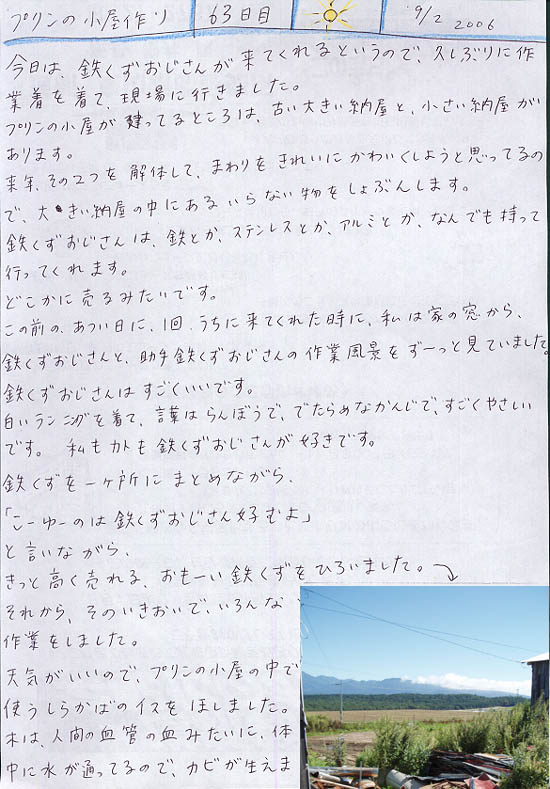 プリンの小屋作り 63日目 9/2 2006
今日は、鉄くずおじさんが来てくれるというので、久しぶりに作
業着を着て、現場に行きました。
プリンの小屋が建ってるところは、古い大きい納屋と、小さい納屋が
あります。
来年、その2つを解体して、まわりをきれいにかわいくしようと思ってるの
で、大きい納屋の中にあるいらない物をしょぶんします。
鉄くずおじさんは、鉄とか、ステンレスとか、アルミとか、なんでも持って
行ってくれます。
どこかに売るみたいです。
この前の、あつい日に、1回、うちに来てくれた時に、私は家の窓から、
鉄くずおじさんと、助手鉄くずおじさんの作業風景をずーっと見ていました。
鉄くずおじさんはすごくいいです。
白いランニングを着て、言葉はらんぼうで、でたらめなかんじで、すごくやさしい
です。 私もカトも鉄くずおじさんが好きです。
鉄くずを一ヶ所にまとめながら、
「こーゆーのは鉄くずおじさん好むよ」
と言いながら、
きっと高く売れる、おもーい鉄くずをひろいました。
それから、そのいきおいで、いろんな
作業をしました。
天気がいいので、プリンの小屋の中で
使うしらかばのイスをほしました。
木は、人間の血管の血みたいに、体
中に水が通ってるので、カビが生えま